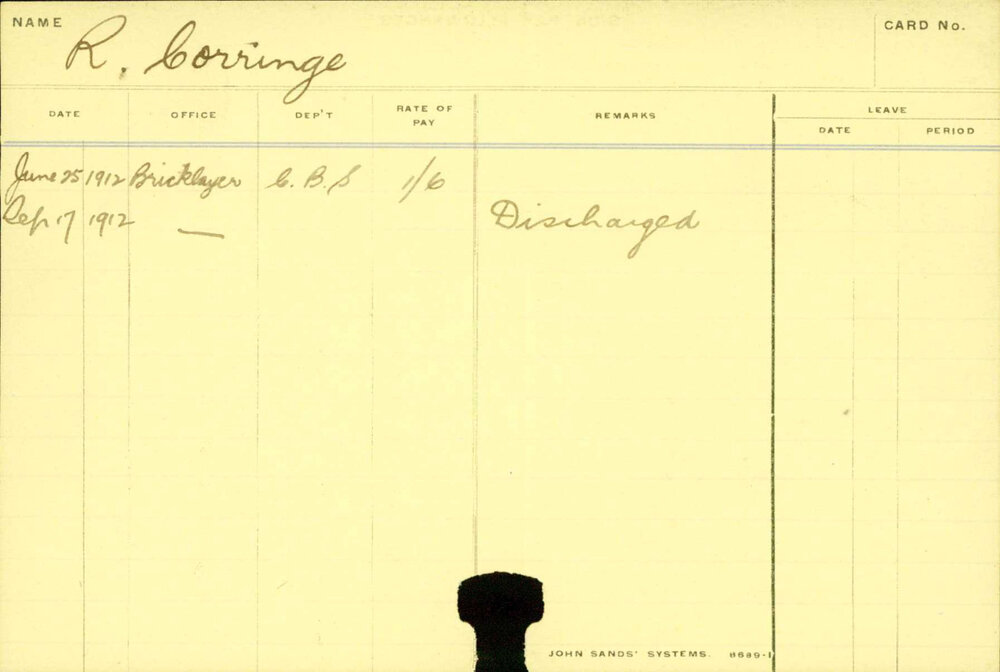 NAME
R. Corringe
CARD No.
DATE OFFICE DEP'T RATE OF PAY REMARKS LEAVE
DATE PERIOD
June 25 1912 Bricklayer C. B. S 1/6
Sep 17 1912 — Discharged
JOHN SANDS' SYSTEMS. 8689-1